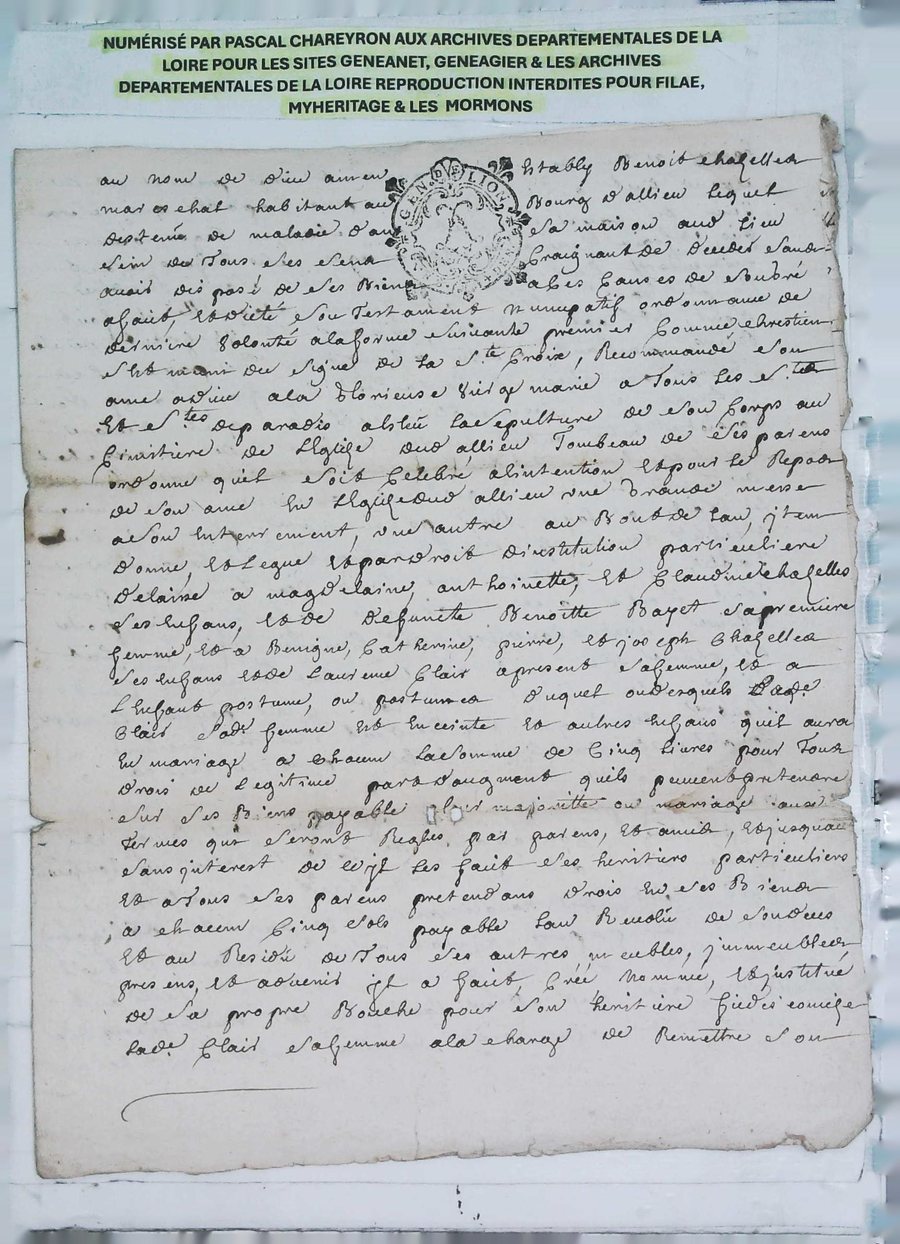 NUMÉRISÉ PAR PASCAL CHAREYRON AUX ARCHIVES DEPARTEMENTALES DE LA
LOIRE POUR LES SITES GENEANET, GENEAGIER & LES ARCHIVES
DEPARTEMENTALES DE LA LOIRE REPRODUCTION INTERDITES POUR FILAE,
MYHERITAGE & LES MORMONS
GEN. DE LION
au nom de dieu amen Establÿ Benoit chazelles
mareschal habitant au Bourg d'allieu lequel
destenû de maladie dans sa maison aud lieu
sein de Tous ses sens Craignant de deceder sans
avoir disposé de ses Biens a Ces Causes de son gré
a fait, et dicté son Testament nuncupatif ordonnance de
derniere volonté a la forme suivante premier Comme chrestien
s'est muni du signe de la Ste Croix, Recommandé son
ame a dieu a la Glorieuse vierge marie a Tous les Sts
Et Stes de paradis a esleü la sepulture de son Corps au
Cimitiere de l'Eglise dud allieu Tombeau de ses parens
ordonne quil soit Celebré a l'intention et pour le Repos
de son ame En l'Eglise dud allieu une Grande messe
a son Enterrement, une autre au Bout de l'an, jtem
donne, et Legue et par droit d'institution particuliere
delaisse a magdelaine, anthoinette, et Claudine chazelles
ses Enfans, et de deffuncte Benoitte Bayet sa premiere
femme, et a Benigne, Catherine, pierre, et joseph Chazelles
ses Enfans et de Laurence Clair a present sa femme, et a
l'Enfant postume, ou postumes duquel ou desquels lade
Clair sade femme est Enceinte et autres Enfans quil aura
En mariage a Chacun la somme de Cinq livres pour Tous
drois de Legitime part d'augment quils peuvent pretendre
sur ses Biens payable a leur majorité ou mariage aux
Termes qui seront Regles par parens, et amis, et jusques
sans interest de quoy il les fait ses heritiers particuliers
Et a Tous ses parens pretendans drois En ses Biens
a chacun Cinq sols payable l'an Revolû de son deces
Et au Residû de Tous ses autres meubles, jmmeubles
presens, et advenir jl a fait, Créé nommé, et jnstitué
de sa propre Bouche pour son heritiere fideicomise
lade Clair sa femme a la charge de Remettre son